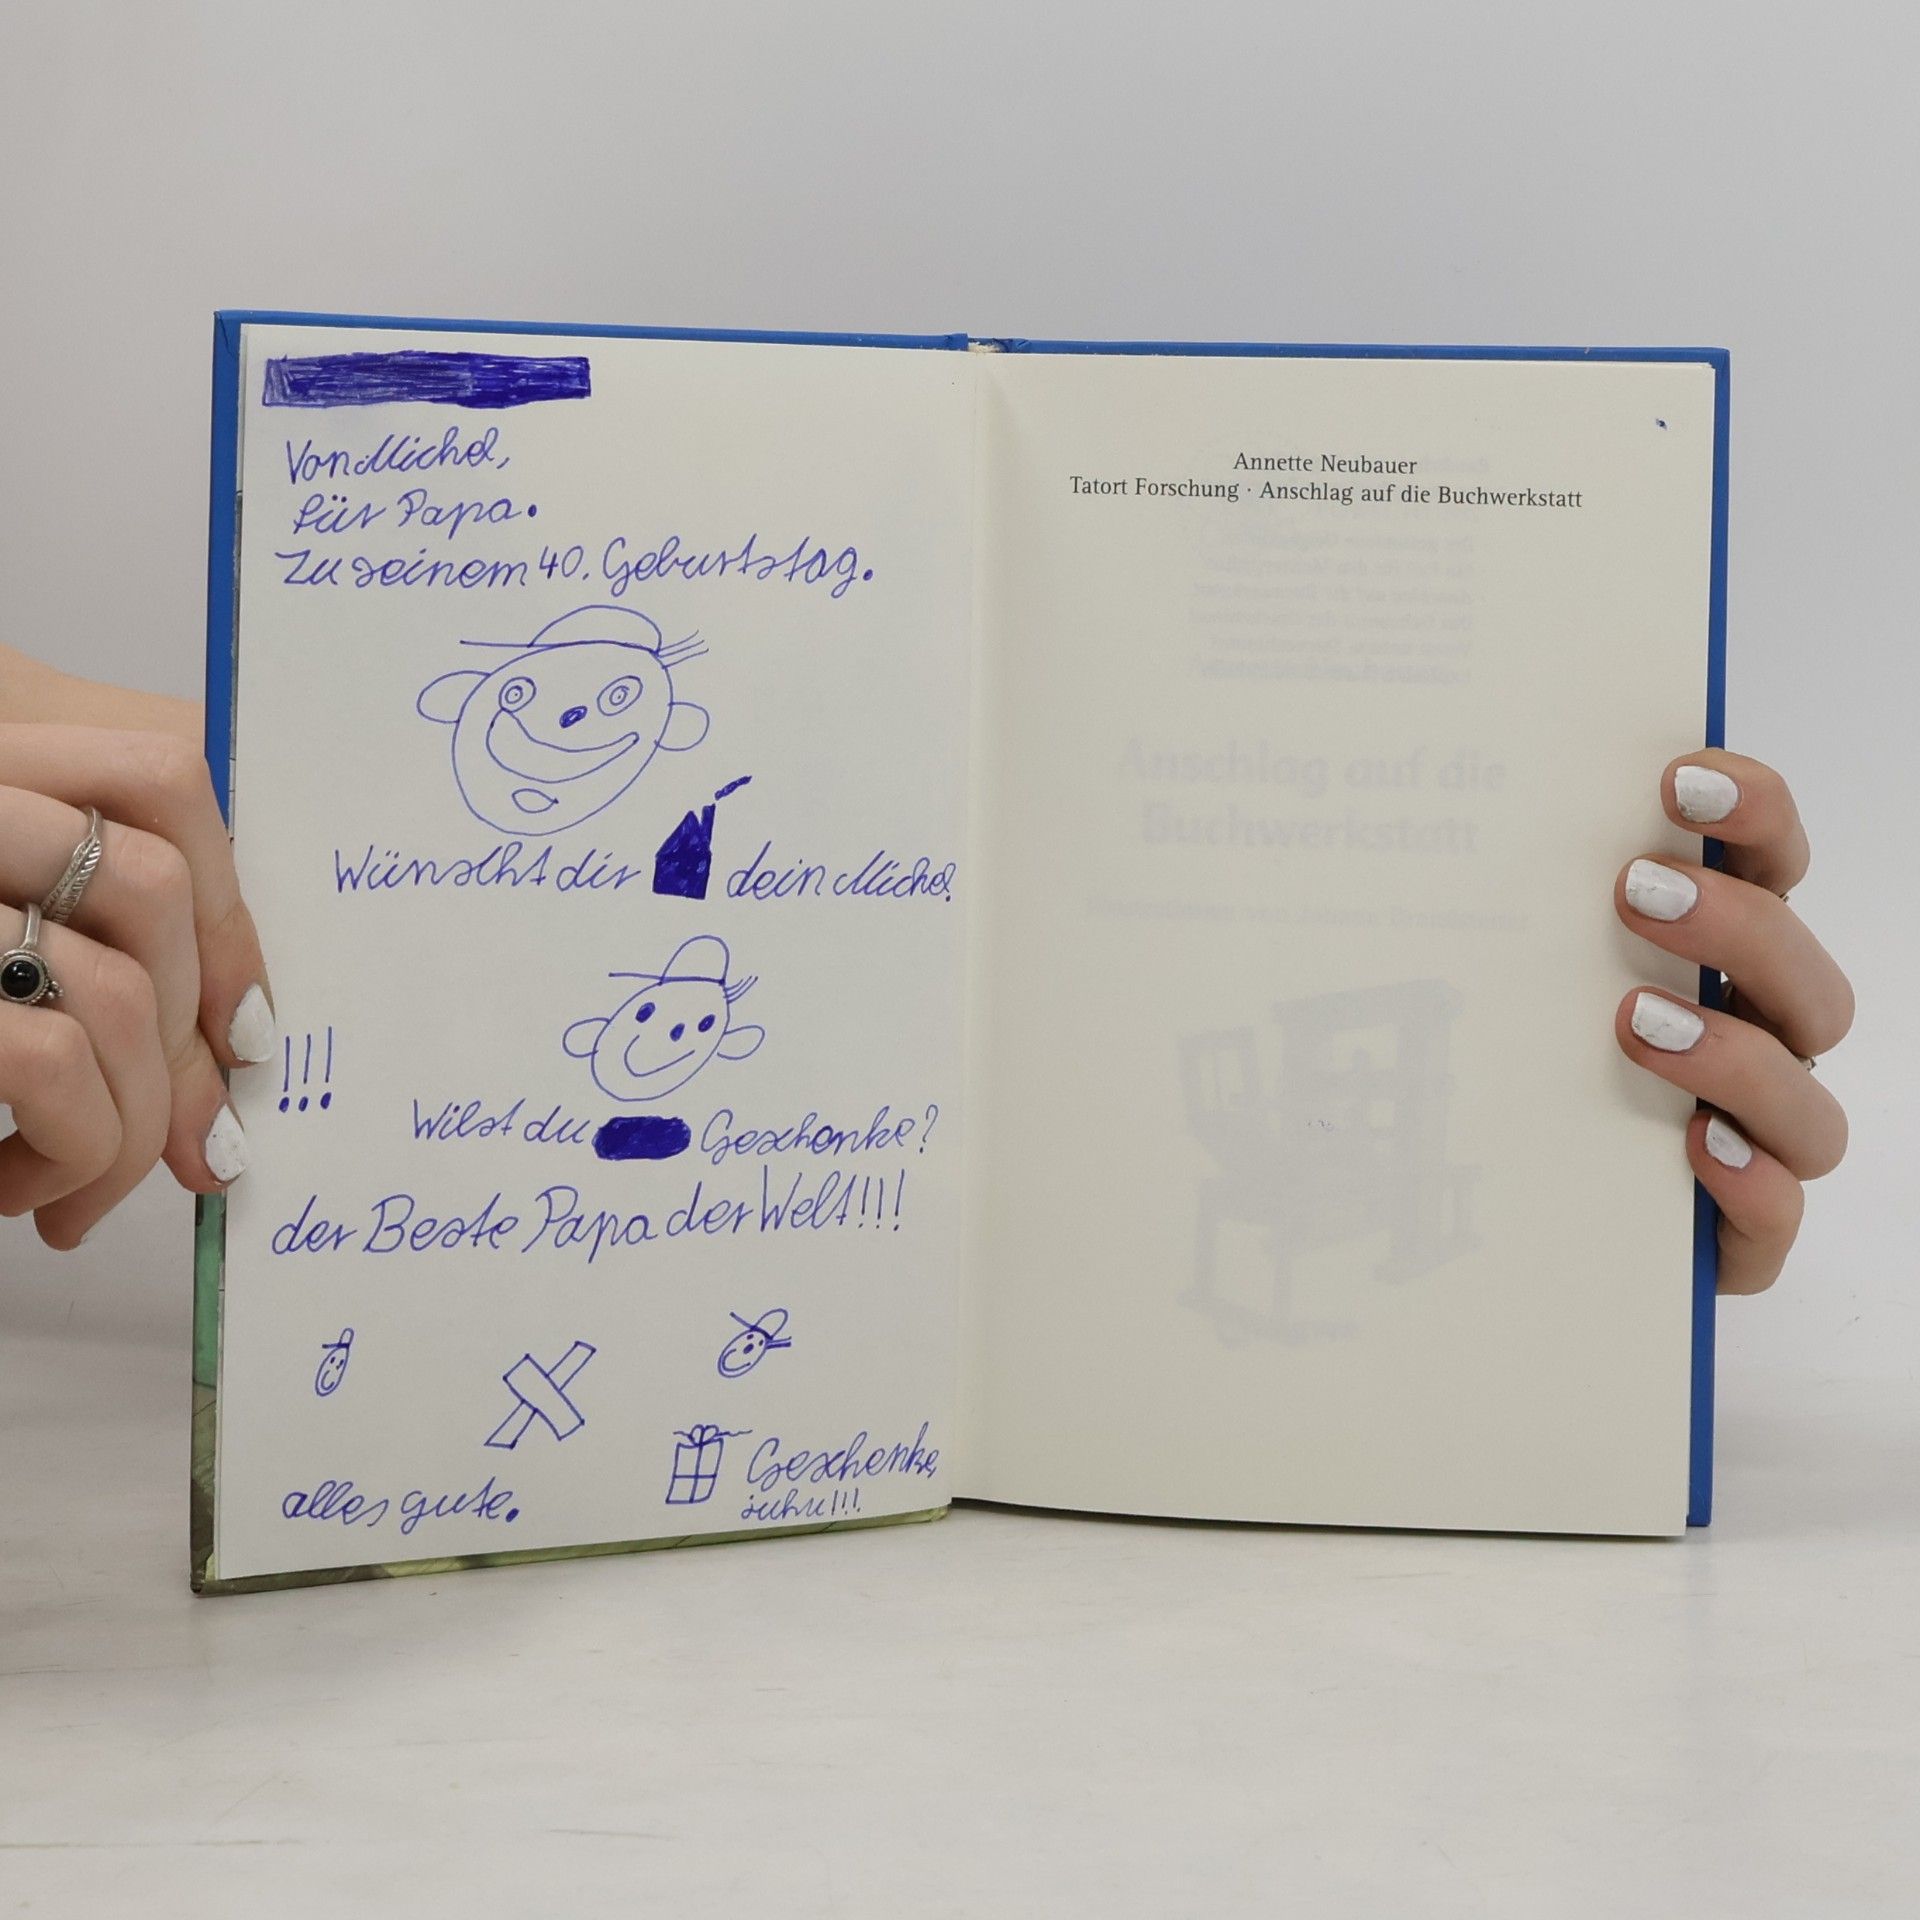 Von Michel,
für Papa.
Zu seinem 40. Geburtstag.
Wünscht dir dein Michel.
!!!
Wilst du Geschenke?
der Beste Papa der Welt!!!
alles gute.
Geschenke,
juhu!!!
Annette Neubauer
Tatort Forschung · Anschlag auf die Buchwerkstatt
Anschlag auf die
Buchwerkstatt